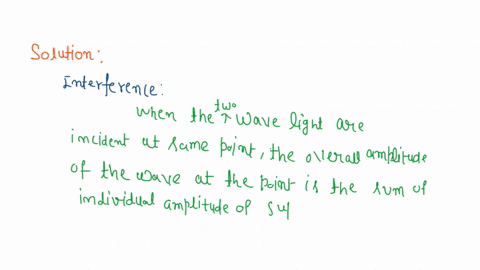 Solution:
Interference:
When the two wave light are
incident at same point, the overall amplitude
of the wave at the point is the sum of
individual amplitude of suf